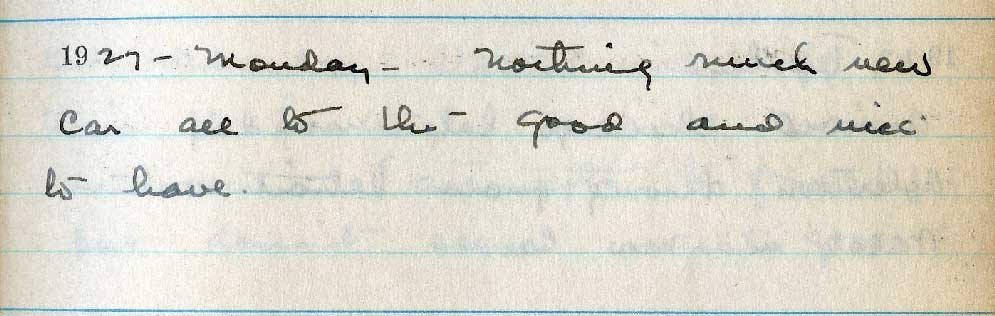 1927 - Monday - Nothing much new
Car all to the good and nice
to have.